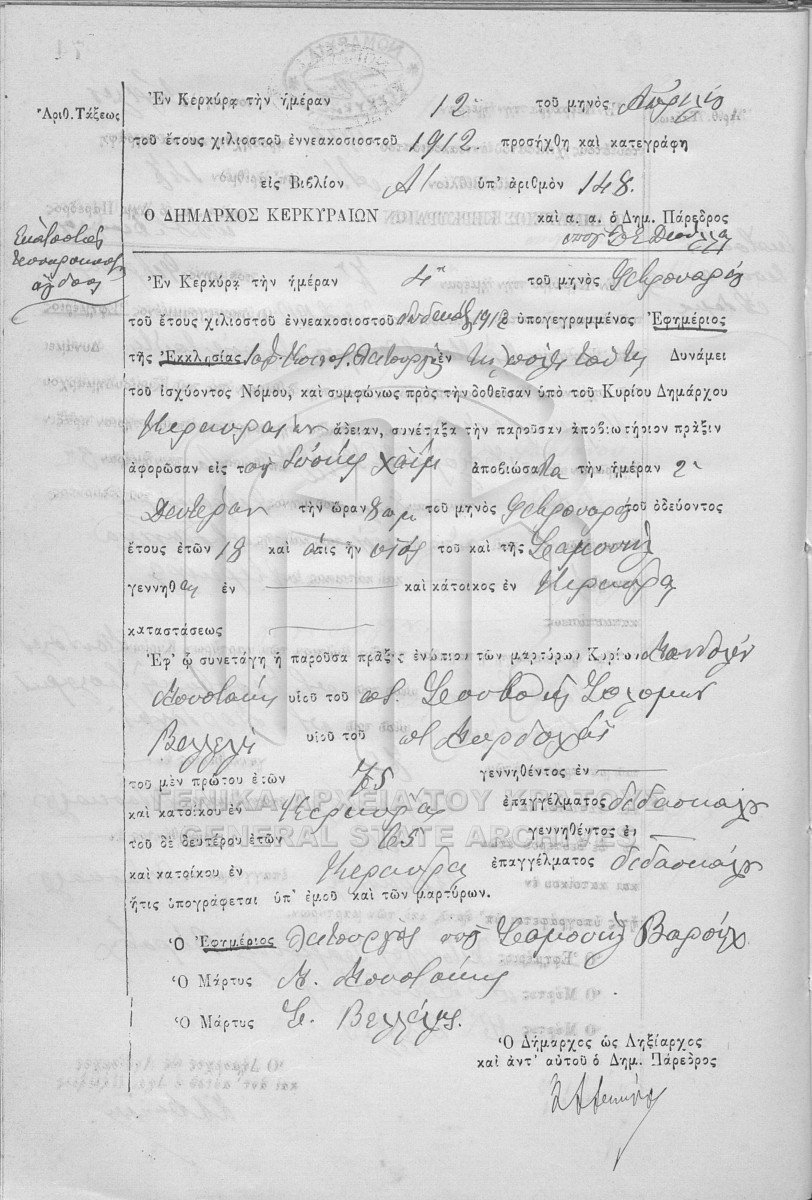 Ἀριθ. Τάξεως
Ἐν Κερκύρᾳ τὴν ἡμέραν 12 τοῦ μηνὸς Ἀπριλίου
τοῦ ἔτους χιλιοστοῦ ἐννεακοσιοστοῦ 1912 προσήχθη καὶ κατεγράφη
εἰς Βιβλίον Α′ ὑπ' ἀριθμὸν 148.
Ο ΔΗΜΑΡΧΟΣ ΚΕΡΚΥΡΑΙΩΝ καὶ α. α. ὁ Δημ. Πάρεδρος
Ἑκατοστὸς
τεσσαρακοστὸς
ὄγδοος
Ἐν Κερκύρᾳ τὴν ἡμέραν 4η τοῦ μηνὸς Φεβρουαρίου
τοῦ ἔτους χιλιοστοῦ ἐννεακοσιοστοῦ δωδεκάτου 1912 ὑπογεγραμμένος Ἐφημέριος
τῆς Ἐκκλησίας Λειτουργῶν ἐν τῇ πόλει ταύτῃ Δυνάμει
τοῦ ἰσχύοντος Νόμου, καὶ συμφώνως πρὸς τὴν δοθεῖσαν ὑπὸ τοῦ Κυρίου Δημάρχου
Κερκυραίων ἄδειαν, συνέταξα τὴν παροῦσαν ἀποβιωτήριον πρᾶξιν
ἀφορῶσαν εἰς τὸν Χαΐμ ἀποβιώσαντα τὴν ἡμέραν 2
Δευτέραν τὴν ὥραν 8 πμ τοῦ μηνὸς Φεβρουαρίου τοῦ ὁδεύοντος
ἔτους ἐτῶν 18 καὶ ὅστις ἦν υἱὸς τοῦ καὶ τῆς Σαμουὴλ
γεννηθεὶς ἐν καὶ κάτοικος ἐν Κερκύρᾳ
καταστάσεως
Ἐφ' ᾧ συνετάγη ἡ παροῦσα πρᾶξις ἐνώπιον τῶν μαρτύρων Κυρίων
Μουστάκης υἱοῦ τοῦ ποτ. Σαββατῆ Σολομὼν
Βελλέλη υἱοῦ τοῦ ποτ. Μαρδοχαῖ
τοῦ μὲν πρώτου ἐτῶν 75 γεννηθέντος ἐν
καὶ κατοίκου ἐν Κερκύρᾳ ἐπαγγέλματος διδασκάλου
ΓΕΝΙΚΑ ΑΡΧΕΙΑ ΤΟΥ ΚΡΑΤΟΥΣ
GENERAL STATE ARCHIVES
τοῦ δὲ δευτέρου ἐτῶν 65 γεννηθέντος ἐν
καὶ κατοίκου ἐν Κερκύρᾳ ἐπαγγέλματος διδασκάλου
ἥτις ὑπογράφεται ὑπ' ἐμοῦ καὶ τῶν μαρτύρων.
Ὁ Ἐφημέριος Λειτουργὸς Σαμουὴλ Βαροὺχ
Ὁ Μάρτυς Μ. Μουστάκης
Ὁ Μάρτυς Σ. Βελλέλης.
Ὁ Δήμαρχος ὡς Ληξίαρχος
καὶ ἀντ' αὐτοῦ ὁ Δημ. Πάρεδρος